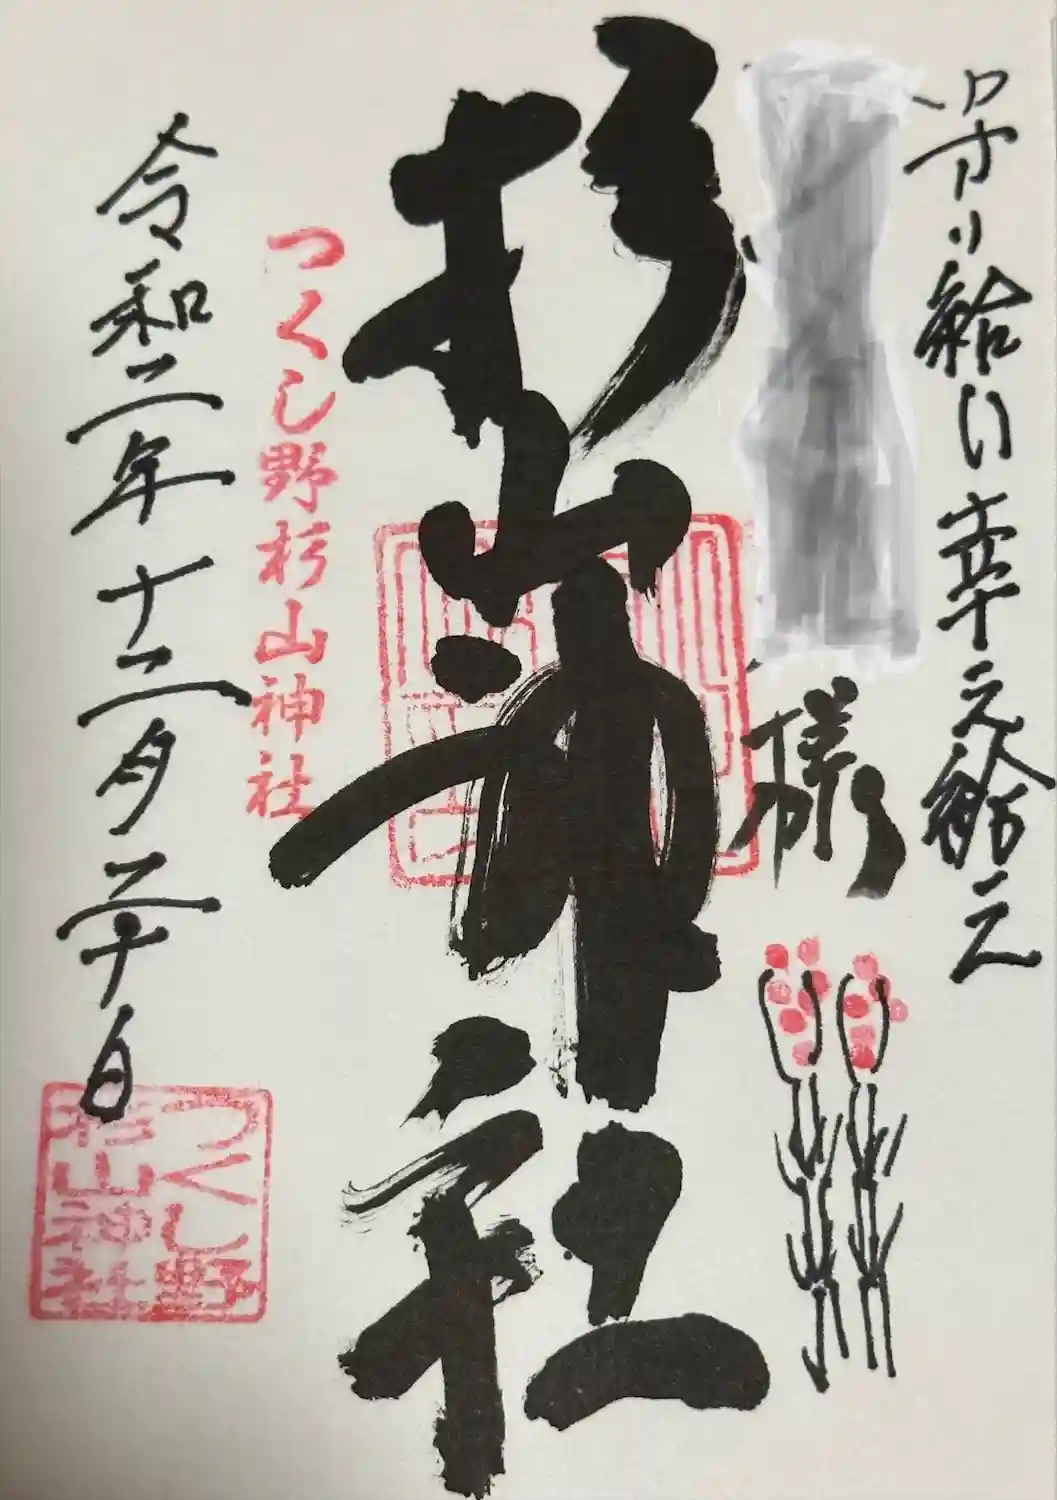 守り給い幸え給え
様
杉山神社
つくし野杉山神社
令和二年十二月二十日
つくし野
杉山神社